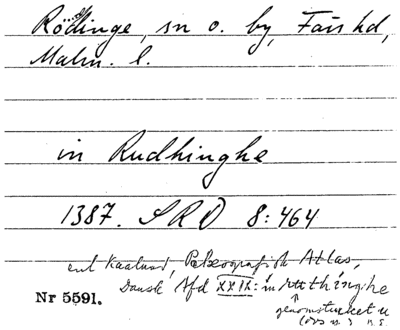 Röddinge, sn o. by, Färs hd,
Malm. l.
in Rudhinghe
1387. SRD 8:464
enl Kaalund, Palæografisk Atlas,
Dansk Afd XXIX: in ruthinghe
Nr 5591.
genomstrucket u